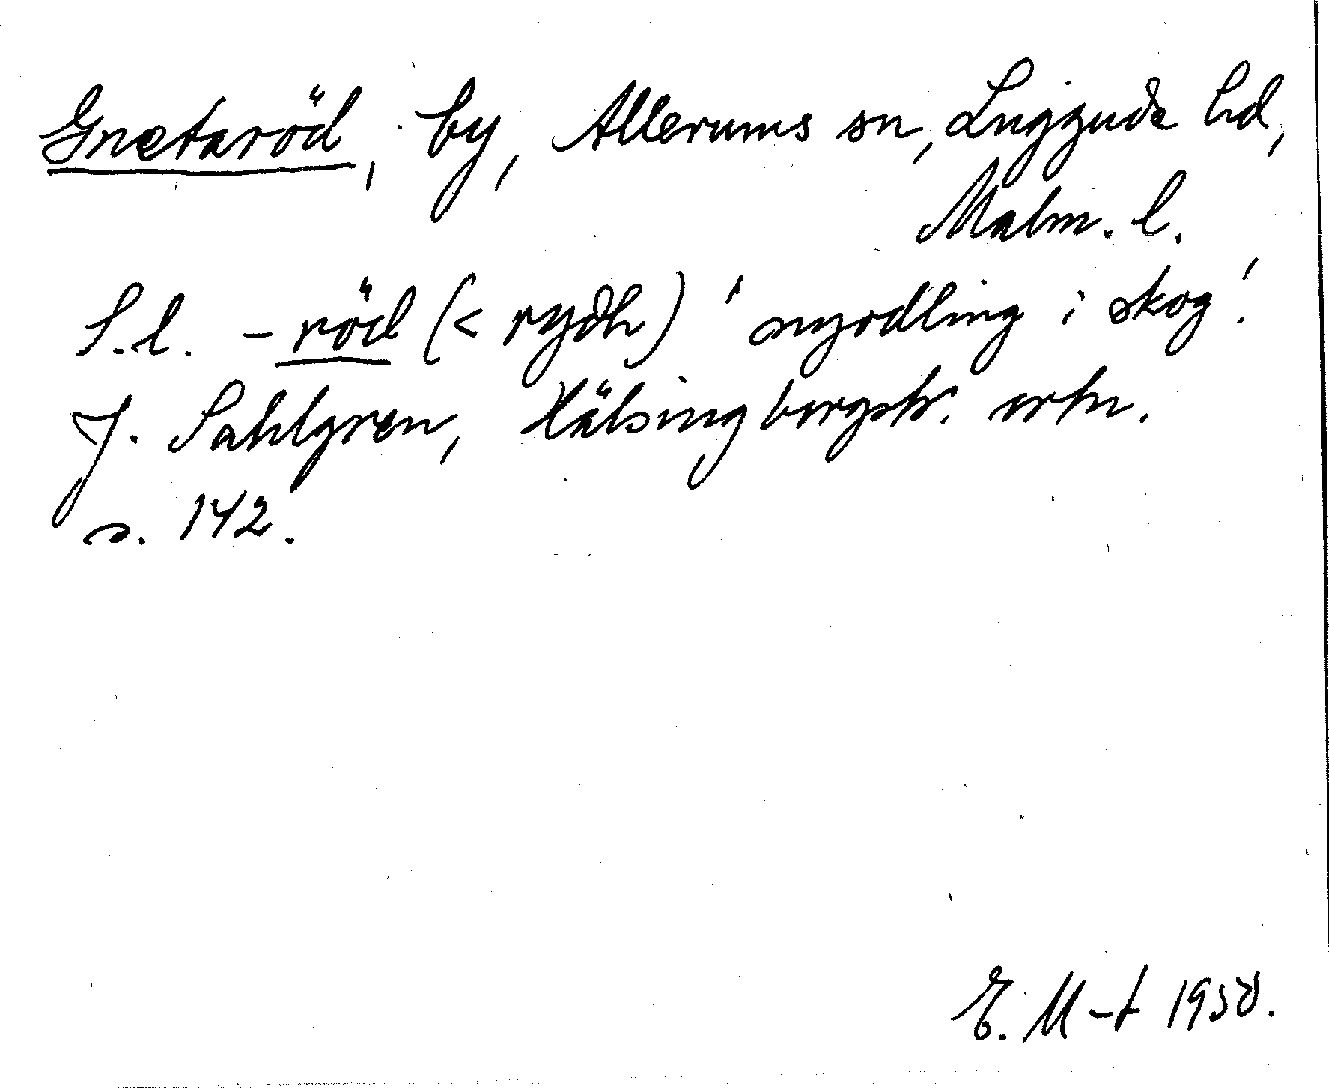 Gnetaröd, by, Allerums sn, Luggude hd,
Malm. l.
S.l. -röd (< rydh) 'nyodling i skog'.
J. Sahlgren, Hälsingborgstr. ortn.
s. 142.
E. M-t 1958.